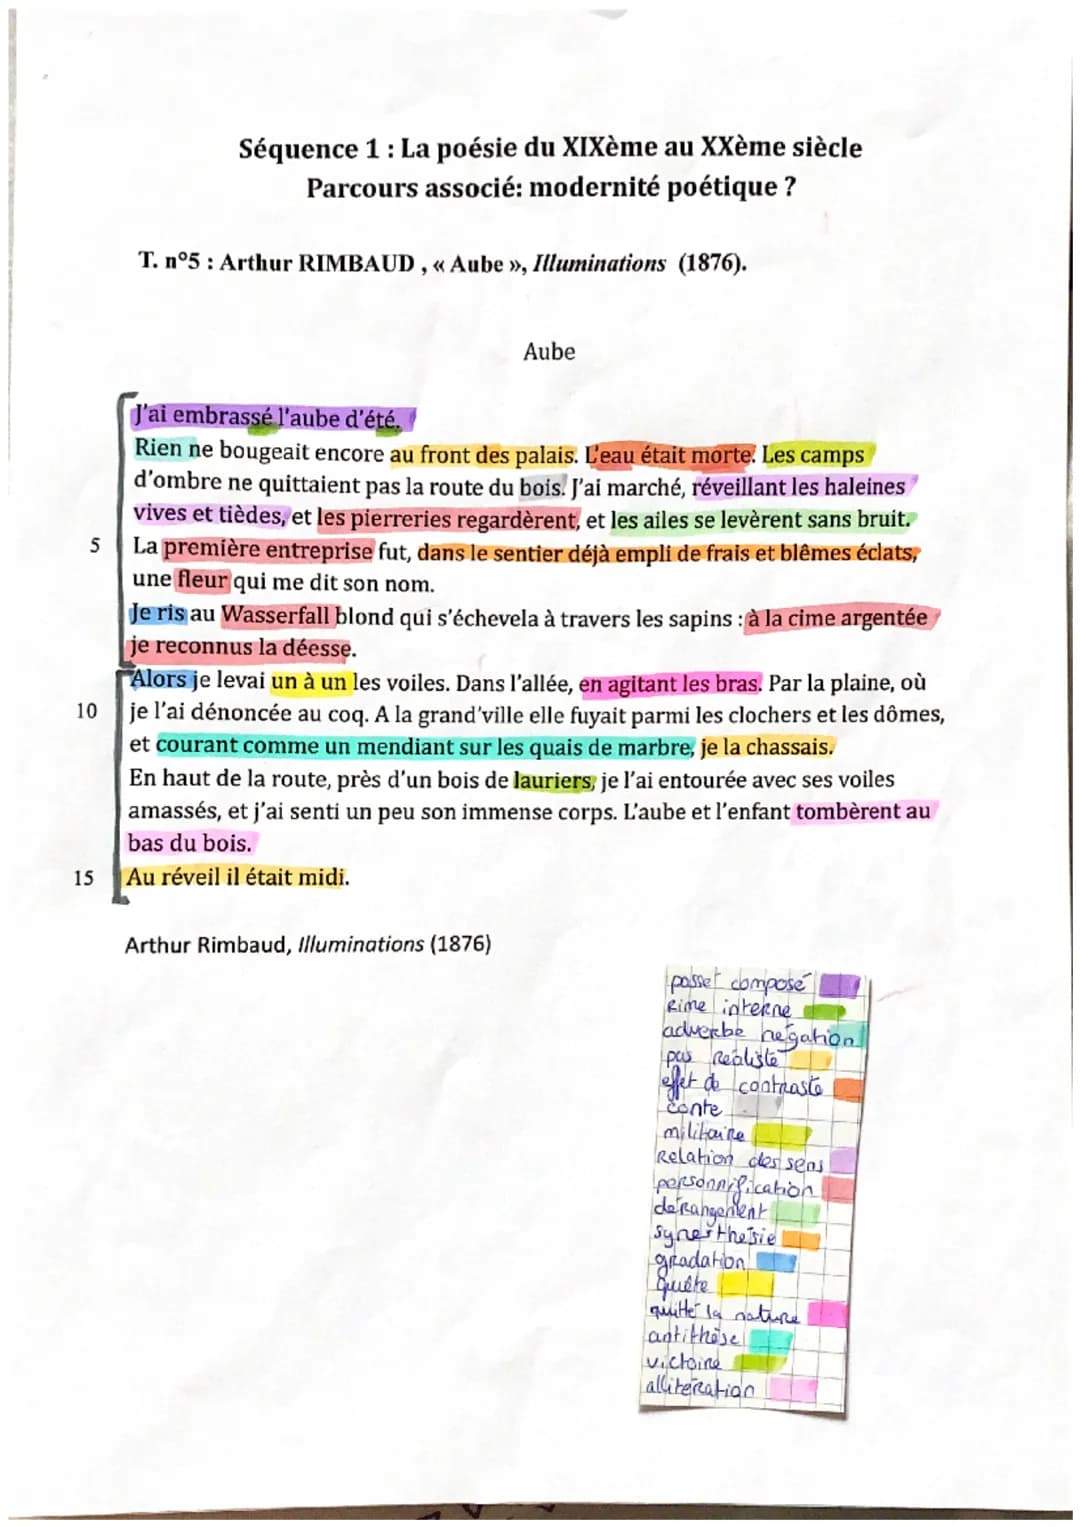 Séquence 1 : La poésie du XIXème au XXème siècle
Parcours associé: modernité poétique ?
T. n°5 : Arthur RIMBAUD , « Aube », Illuminations (1876).
Aube
J'ai embrassé l'aube d'été.
Rien ne bougeait encore au front des palais. L'eau était morte. Les camps
d'ombre ne quittaient pas la route du bois. J'ai marché, réveillant les haleines
vives et tièdes, et les pierreries regardèrent, et les ailes se levèrent sans bruit.
5 La première entreprise fut, dans le sentier déjà empli de frais et blêmes éclats,
une fleur qui me dit son nom.
Je ris au Wasserfall blond qui s'échevela à travers les sapins : à la cime argentée
je reconnus la déesse.
Alors je levai un à un les voiles. Dans l'allée, en agitant les bras. Par la plaine, où
10 je l'ai dénoncée au coq. A la grand'ville elle fuyait parmi les clochers et les dômes,
et courant comme un mendiant sur les quais de marbre, je la chassais.
En haut de la route, près d'un bois de lauriers, je l'ai entourée avec ses voiles
amassés, et j'ai senti un peu son immense corps. L'aube et l'enfant tombèrent au
bas du bois.
15 Au réveil il était midi.
Arthur Rimbaud, Illuminations (1876)
passet composé
Rime interne
adverbe négation
pas réaliste
effet de contraste
conte
militaire
Relation des sens
personnification
dérangement
synesthésie
gradation
quête
quitté la nature
antithèse
victoire
allitération